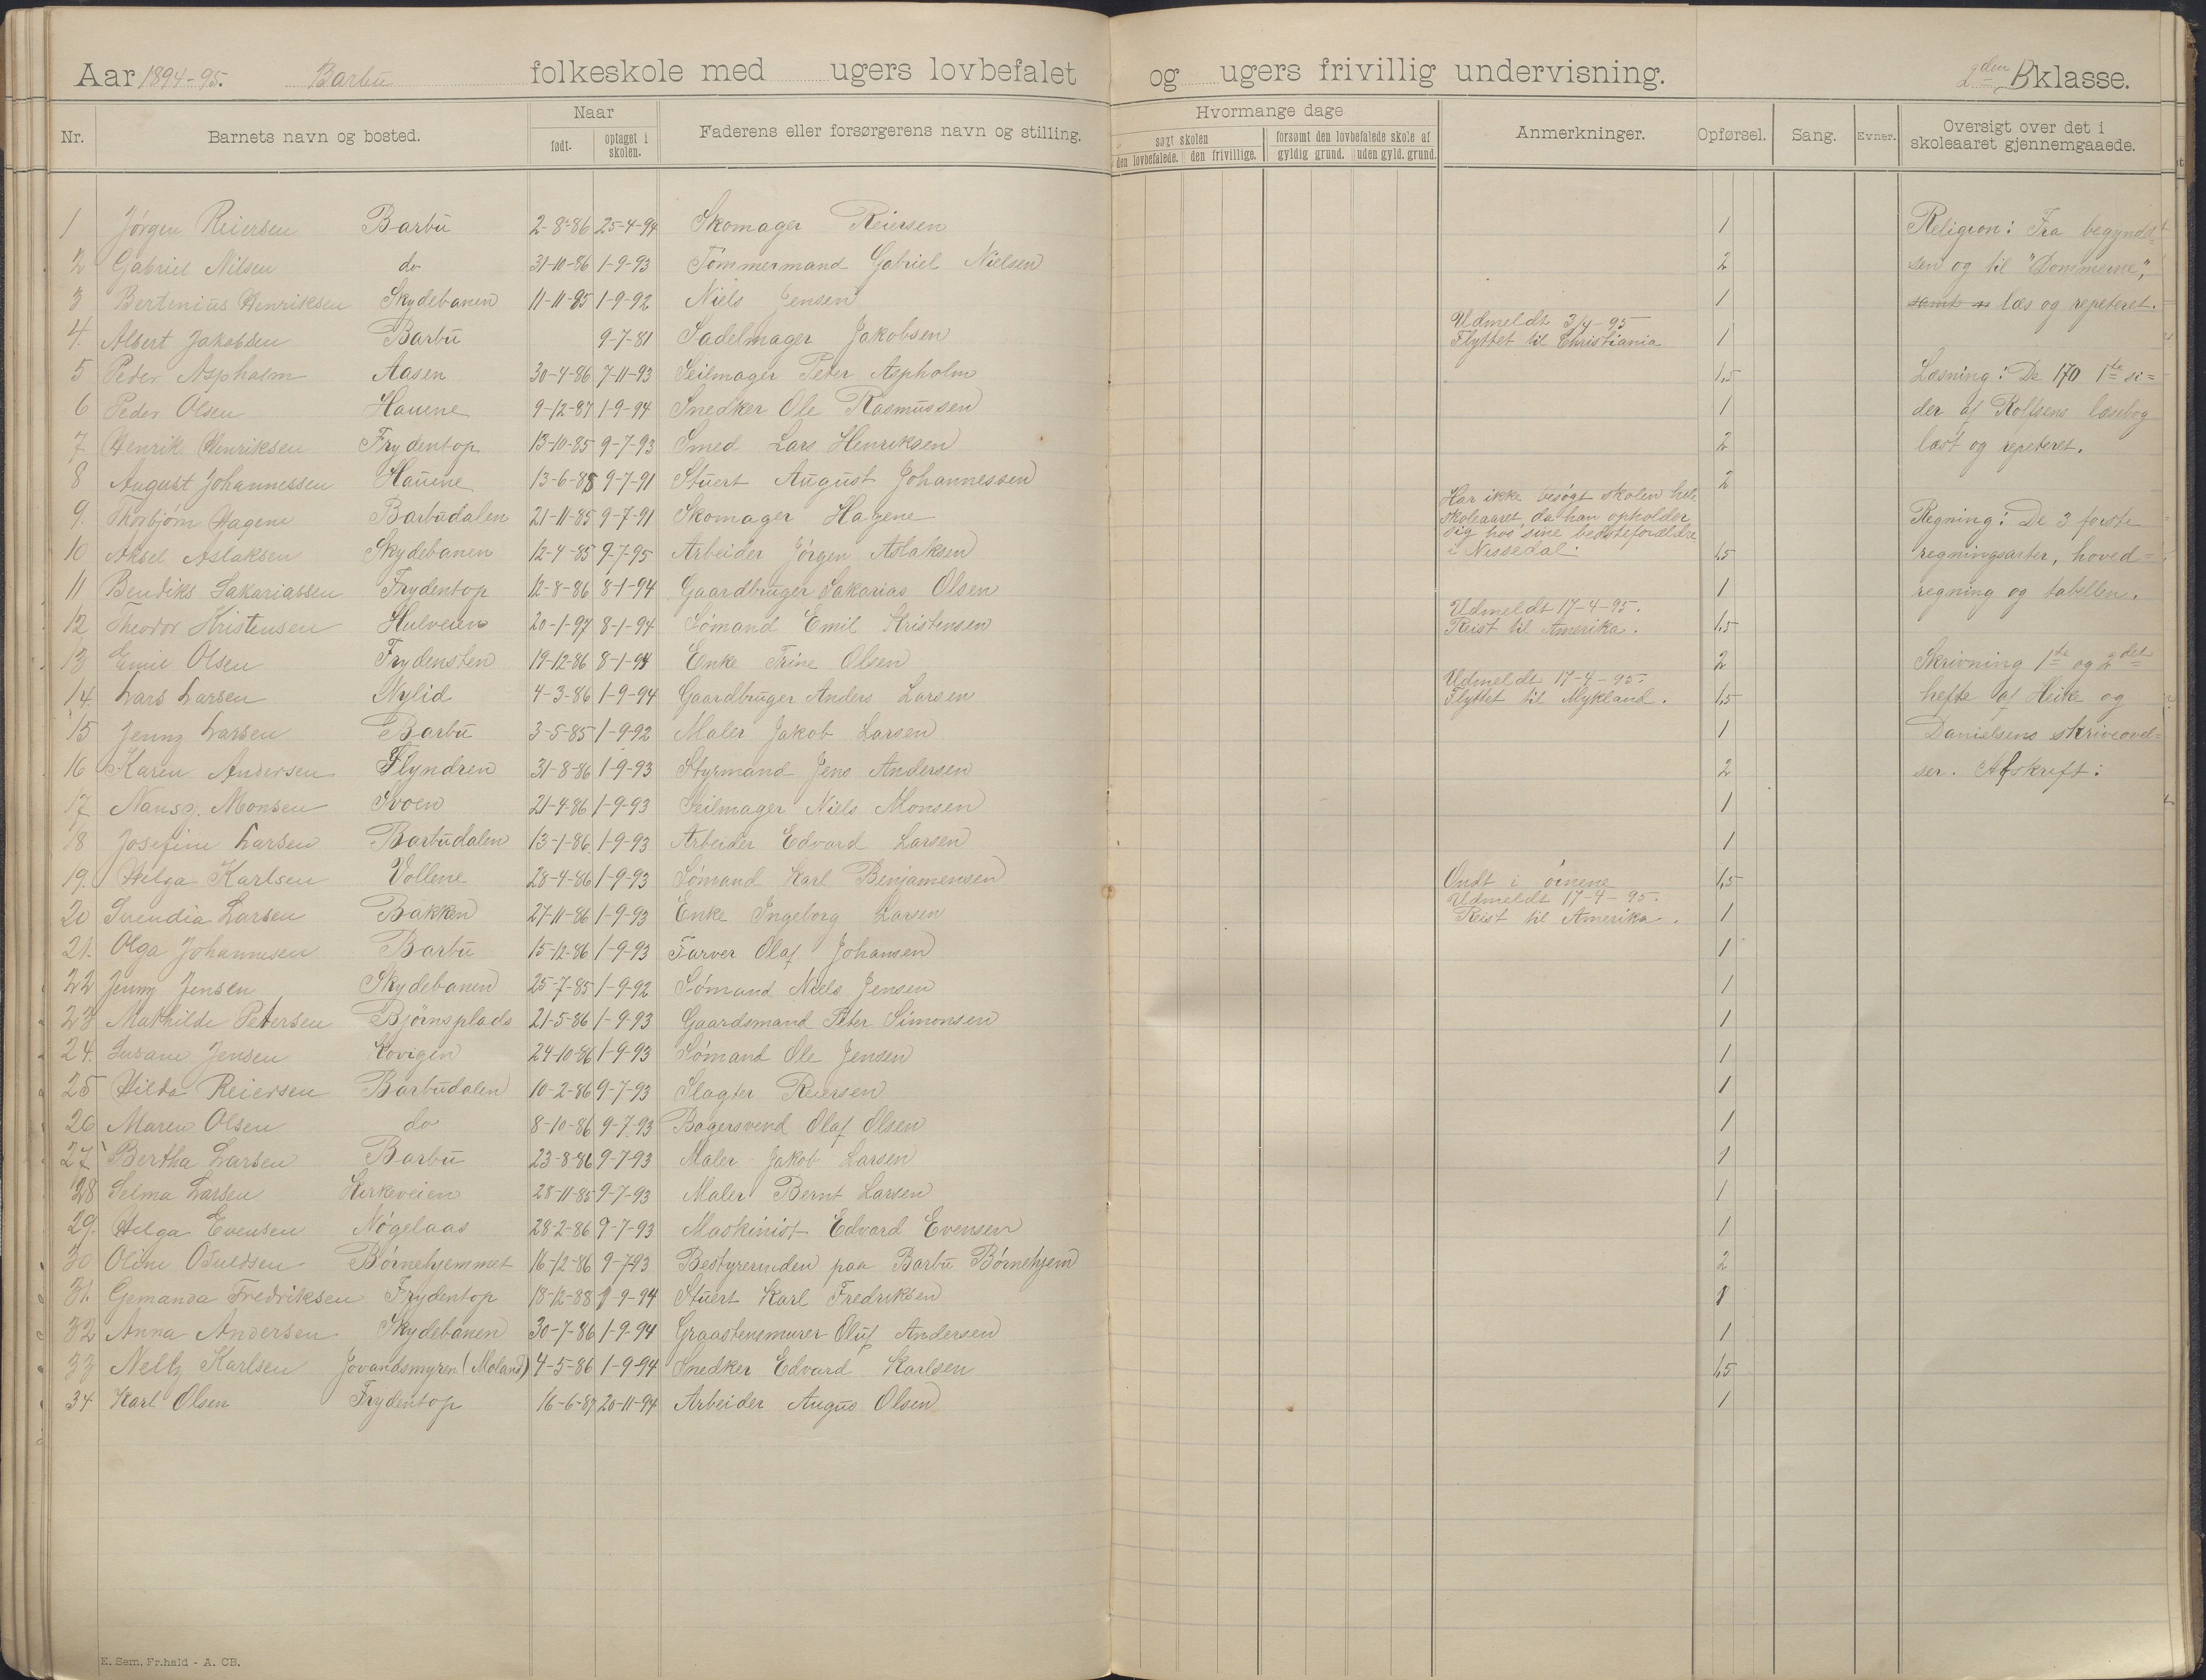 Aar 1894-95. Barbu folkeskole med ugers lovbefalet og ugers frivillig undervisning. 2den B klasse.
Nr. Barnets navn og bosted. Naar født. optaget i skolen. Faderens eller forsørgerens navn og stilling. Hvormange dage søgt skolen den lovbefalede. den frivillige. forsømt den lovbefalede skole af gyldig grund. uden gyld. grund. Anmerkninger. Opførsel. Sang. Evner. Oversigt over det i skoleaaret gjennemgaaede.
1 Jørgen Reiersen Barbu 2-8-86 25-4-94 Skomager Reiersen 1 Religion: Fra begyndel-
2 Gabriel Nilsen do 31-10-86 1-9-93 Tømmermand Gabriel Nielsen 2 sen og til "Dommerne",
3 Bertenius Henriksen Skydebanen 11-11-85 1-9-92 Niels Jensen 1 samt læs og repeteret.
4. Albert Jakobsen Barbu 9-7-81 Sadelmager Jakobsen Udmeldt 3/4-95 Flyttet til Christiania 1
5 Peder Aspholm Aasen 30-4-86 7-11-93 Seilmager Peter Aspholm 1,5 Læsning: De 170 1te si=
6 Peder Olsen Hauene 9-12-87 1-9-94 Snedker Ole Rasmussen 1 der af Rolfsens læsebog
7 Henrik Henriksen Frydentop 13-10-85 9-7-93 Smed Lars Henriksen 2 læst og repeteret.
8 August Johannessen Hauene 13-6-85 9-7-91 Stuert August Johannessen 2
9. Thorbjørn Hagene Barbudalen 21-11-85 9-7-91 Skomager Hagene Har ikke besøgt skolen hele skoleaaret, da han opholder sig hos sine bedsteforældre i Nissedal. Regning: De 3 første
10 Aksel Aslaksen Skydebanen 12-4-85 9-7-95 Arbeider Jørgen Aslaksen 1,5 regningsarter, hoved=
11 Bendiks Sakariassen Frydentop 12-8-86 8-1-94 Gaardbruger Sakarias Olsen 1 regning og tabellen.
12 Theodor Kristensen Hulveien 20-1-97 8-1-94 Sømand Emil Kristensen Udmeldt 17-4-95. Reist til Amerika. 1,5
13 Emil Olsen Frydensten 19-12-86 8-1-94 Enke Trine Olsen 2 Skrivning 1te og 2det
14. Lars Larsen Nylid 4-3-86 1-9-94 Gaardbruger Anders Larsen Udmeldt 17-4-95. Flyttet til Mykland. 1,5 hefte af Heike og
15 Jenny Larsen Barbu 3-5-85 1-9-92 Maler Jakob Larsen 1 Danielsens skriveøvel=
16 Karen Andersen Flyndren 31-8-86 1-9-93 Styrmand Jens Andersen 2 ser. Afskrift:
17 Nansy Monsen 21-4-86 1-9-93 Seilmager Niels Monsen 1
18 Josefine Larsen Barbudalen 13-1-86 1-9-93 Arbeider Edvard Larsen 1
19. Helga Karlsen Vollene 28-4-86 1-9-93 Sømand Karl Benjamensen Ondt i øinene 1,5
20 Svendia Larsen Bakken 27-11-86 1-9-93 Enke Ingeborg Larsen Udmeldt 17-4-95. Reist til Amerika. 1
21. Olga Johannesen Barbu 15-12-86 1-9-93 Farver Olaf Johansen 1
22 Jenny Jensen Skydebanen 25-7-85 1-9-92 Sømand Niels Jensen 1
23 Mathilde Petersen Bjørnsplads 21-5-86 1-9-93 Gaardsmand Peter Simonsen 1
24. Susane Jensen Kovigen 24-10-86 1-9-93 Sømand Ole Jensen 1
25 Hilda Reiersen Barbudalen 10-2-86 9-7-93 Slagter Reiersen 1
26 Maren Olsen do 8-10-86 9-7-93 Bagersvend Olaf Olsen 1
27 Bertha Larsen Barbu 23-8-86 9-7-93 Maler Jakob Larsen 1
28 Selma Larsen Kirkeveien 28-11-85 9-7-93 Maler Bernt Larsen 1
29. Helga Evensen Nøgelaas 28-2-86 9-7-93 Maskinist Edvard Evensen 1
30 Oline Osuldsen Børnehjemmet 16-12-86 9-7-93 Bestyrerinden paa Barbu Børnehjem 2
31. Gemanda Fredriksen Frydentop 18-12-88 1-9-94 Stuert Karl Fredriksen 1
32 Anna Andersen Skydebanen 30-7-86 1-9-94 Graastensmurer Oluf Andersen 1
33 Nelly Karlsen Jovandsmyren (Moland) 4-5-86 1-9-94 Snedker Edvard Karlsen 1,5
34 Karl Olsen Frydentop 16-6-87 20-11-94 Arbeider Augus Olsen 1
E. Sem, Fr.hald - A. CB.